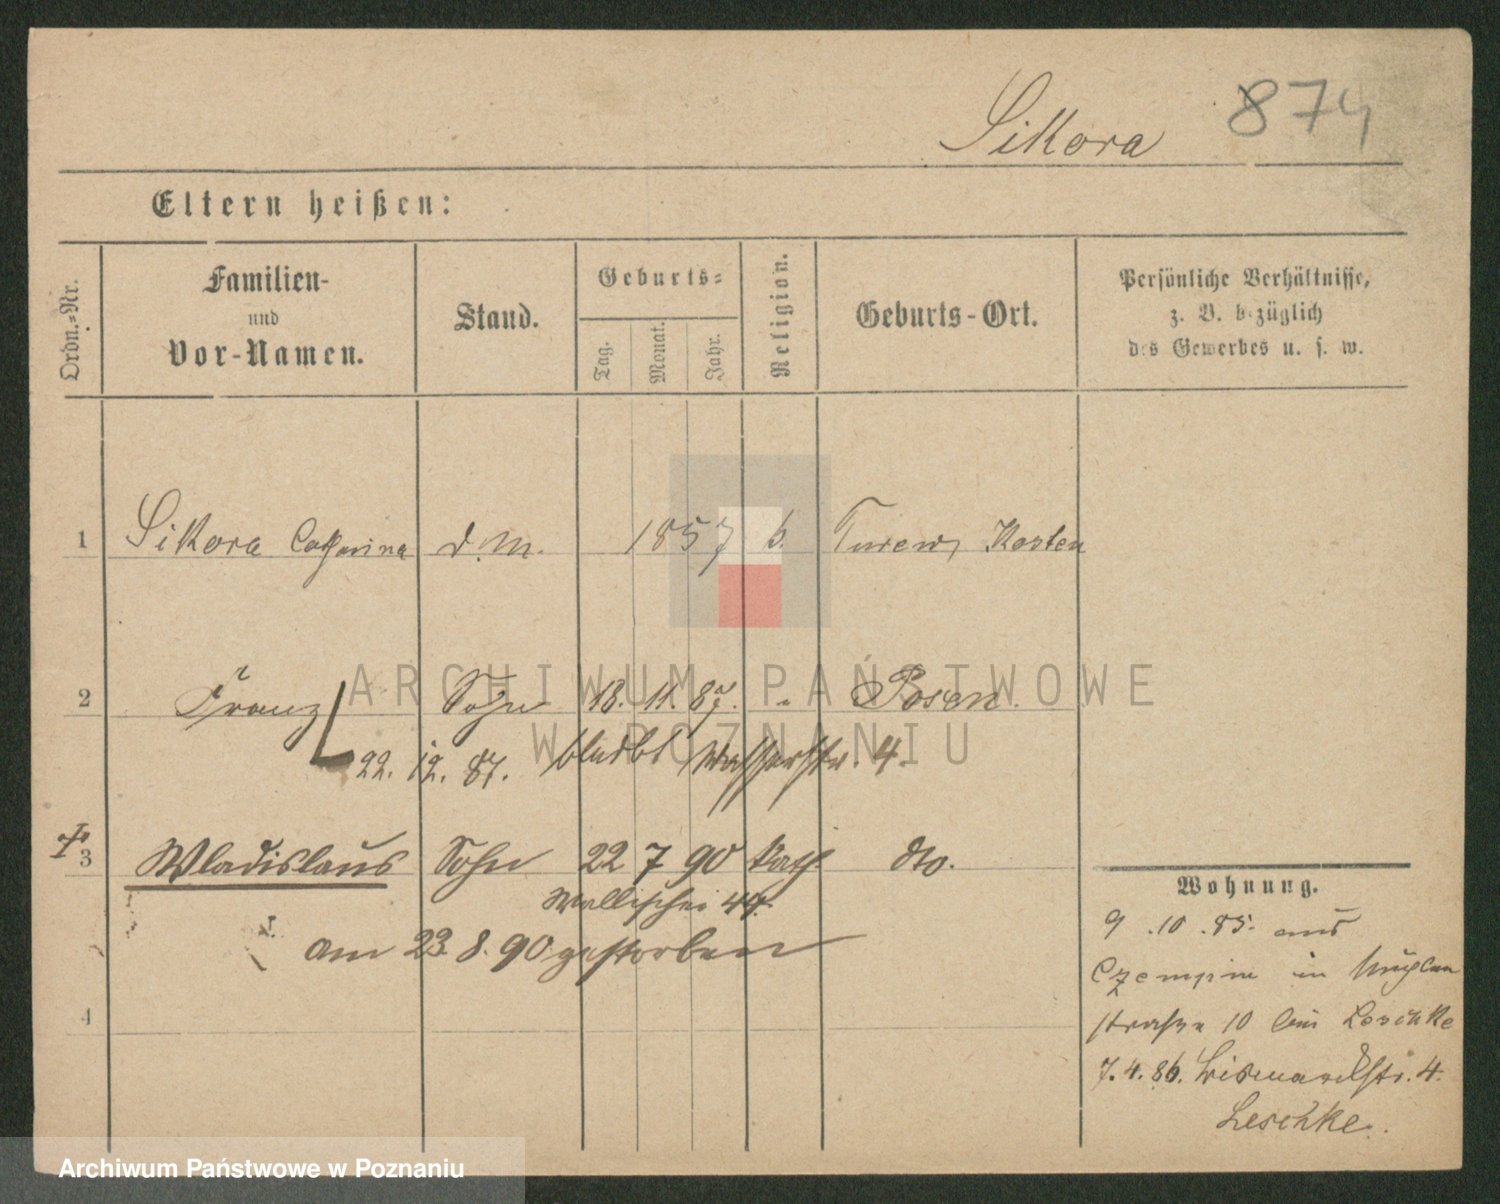 Sikora 874
Eltern heißen:
Ordn.-Nr.
Familien-
und
Vor-Namen.
Stand.
Geburts-
Tag.
Monat.
Jahr.
Religion.
Geburts-Ort.
Persönliche Verhältnisse,
z. B. bezüglich
des Gewerbes u. s. w.
1 Sikora Catharina d. M. 1857 k. Turew, Kosten
2 Franz Sohn 18. 11. 87. " Posen.
22. 12. 87. Wasserstr. 4.
3 Wladislaus Sohn 22 7 90 kath. dto.
Wallischei 44.
am 23. 8. 90 gestorben
4
Wohnung.
9. 10. 85. aus
Czempin in
straße 10 bei Leschke
7. 4. 86. Bismarckstr. 4.
Leschke.
ARCHIWUM PAŃSTWOWE
W POZNANIU
Archiwum Państwowe w Poznaniu